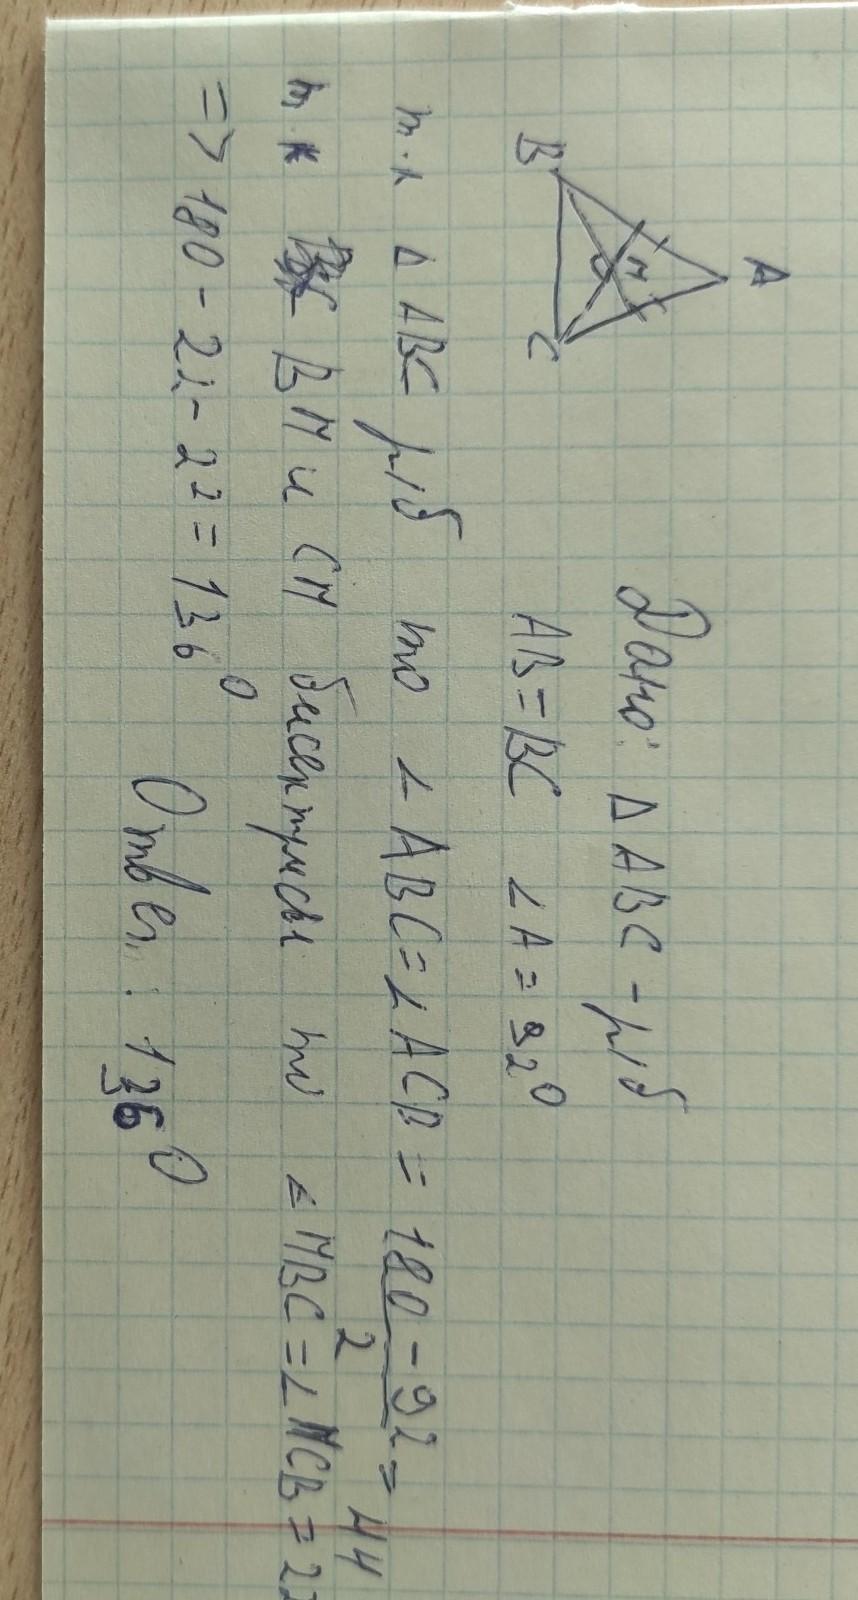 A
B
M
C
Дано: Δ ABC - р/б
AB = BC ∠A = 92°
т.к Δ ABC р/б то ∠ABC = ∠ACB = 180 - 92 / 2 = 44
т.к BM и CM бисектрисы то ∠MBC = ∠MCB = 22
=> 180 - 22 - 22 = 136°
Ответ: 136°